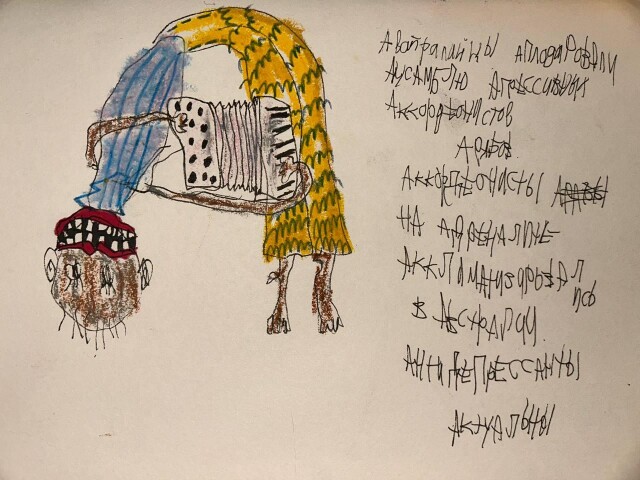 Австралийцы аплодировали
ансамблю агрессивных
аккордеонистов
арабов.
Аккордеонисты арабы
на адреналине
акклиматизировал
ись
в Австралии.
Антидепрессанты
актуальны